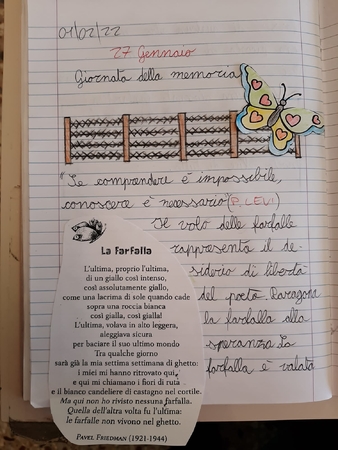 01/02/22
27 Gennaio
Giornata della memoria
"Se comprendere è impossibile,
conoscere è necessario (P. LEVI)
Il volo delle farfalle
rappresenta il de-
siderio di libertà
del poeta. Paragona
la farfalla alla
speranza. La
farfalla è volata
La Farfalla
L'ultima, proprio l'ultima,
di un giallo così intenso,
così assolutamente giallo,
come una lacrima di sole quando cade
sopra una roccia bianca
così gialla, così gialla!
L'ultima, volava in alto leggera,
aleggiava sicura
per baciare il suo ultimo mondo
Tra qualche giorno
sarà già la mia settima settimana di ghetto:
i miei mi hanno ritrovato qui
e qui mi chiamano i fiori di ruta
e il bianco candeliere di castagno nel cortile.
Ma qui non ho rivisto nessuna farfalla.
Quella dell'altra volta fu l'ultima:
le farfalle non vivono nel ghetto.
PAVEL FRIEDMAN (1921-1944)